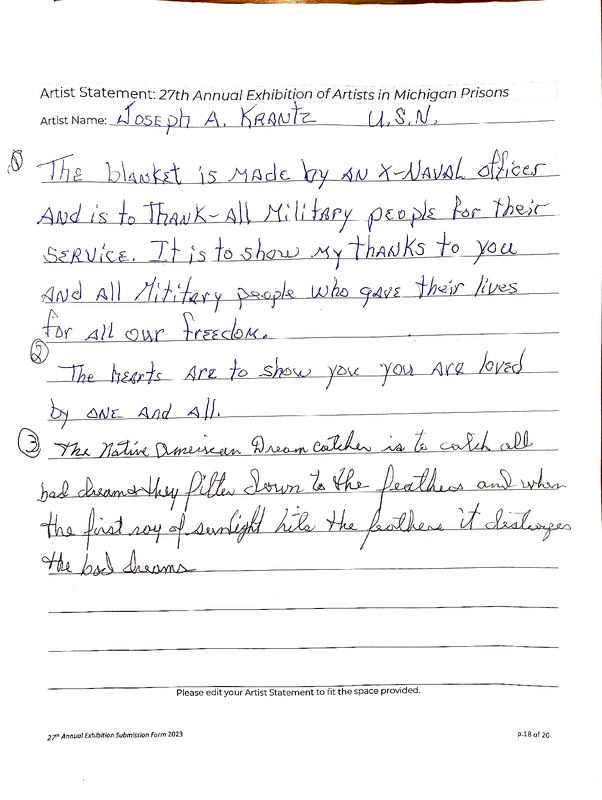 Artist Statement: 27th Annual Exhibition of Artists in Michigan Prisons
Artist Name: Joseph A. Krantz U.S.N.
① The blanket is made by an X-Naval officer
And is to Thank-All Military people for their
Service. It is to show my thanks to you
And All Mititary people who gave their lives
for all our freedom.
② The hearts are to show you you are loved
by one and all.
③ The Native American Dream catcher is to catch all
bad dreams they filter down to the feathers and when
the first ray of sunlight hits the feathers it destroyes
the bad dreams
Please edit your Artist Statement to fit the space provided.
27th Annual Exhibition Submission Form 2023 p.18 of 20